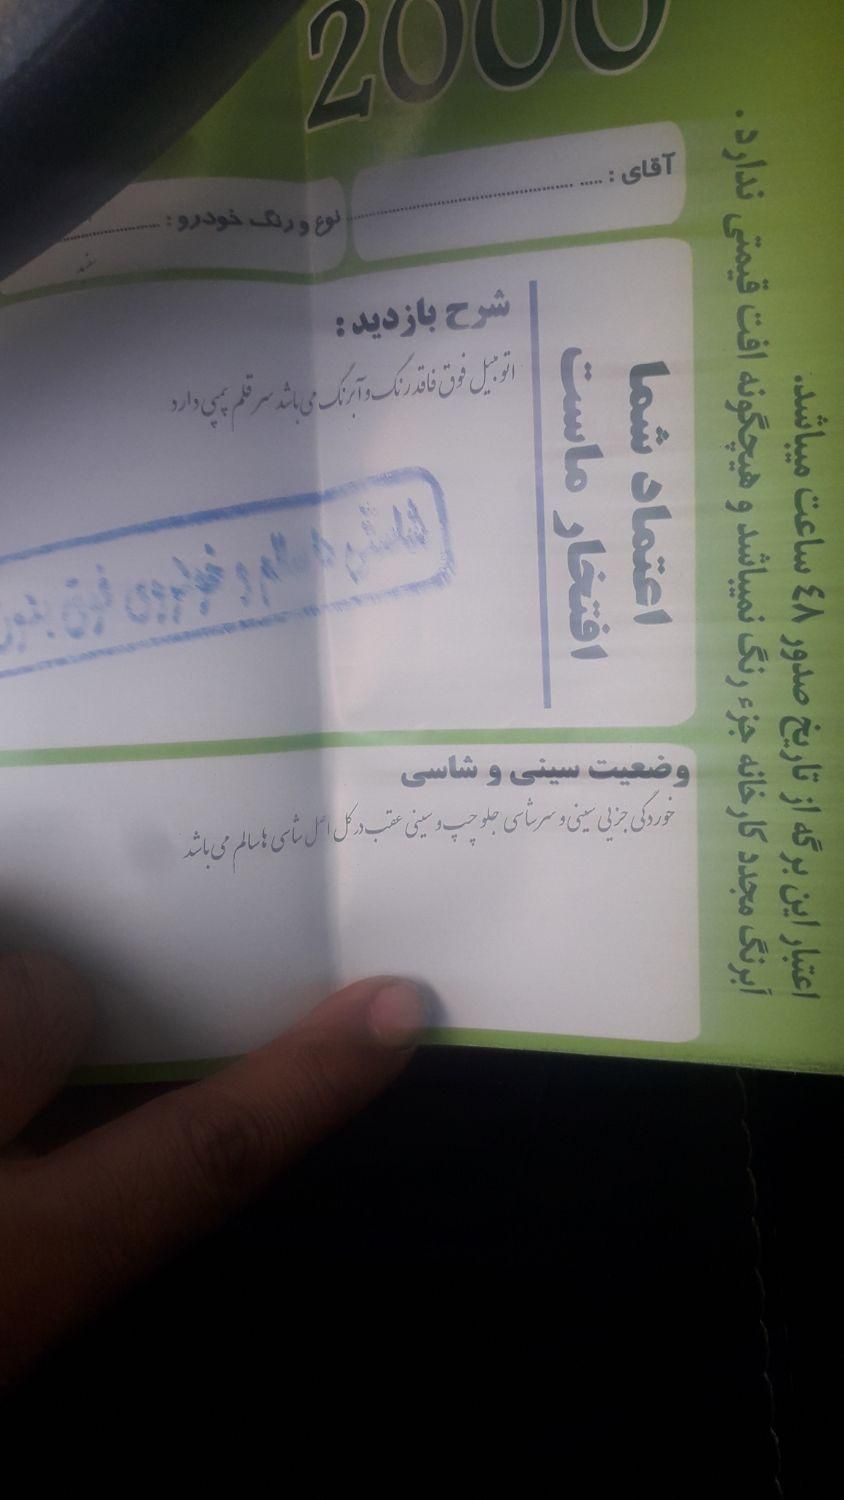 2000
آقای : ..... 
نوع و رنگ خودرو :
سفید
شرح بازدید :
اتومبیل فوق فاقد رنگ و آبرنگ می باشد سر قلم پمپی دارد
اعتماد شما
افتخار ماست
و خودروی فوق بدون
وضعیت سینی و شاسی
خوردگی جزیی سینی و سرشاسی جلو چپ و سینی عقب در کل اصل شاسی ها سالم می باشد
اعتبار این برگه از تاریخ صدور ٤٨ ساعت میباشد.
آبرنگ مجدد کارخانه جزء رنگ نمیباشد و هیچگونه افت قیمتی ندارد .